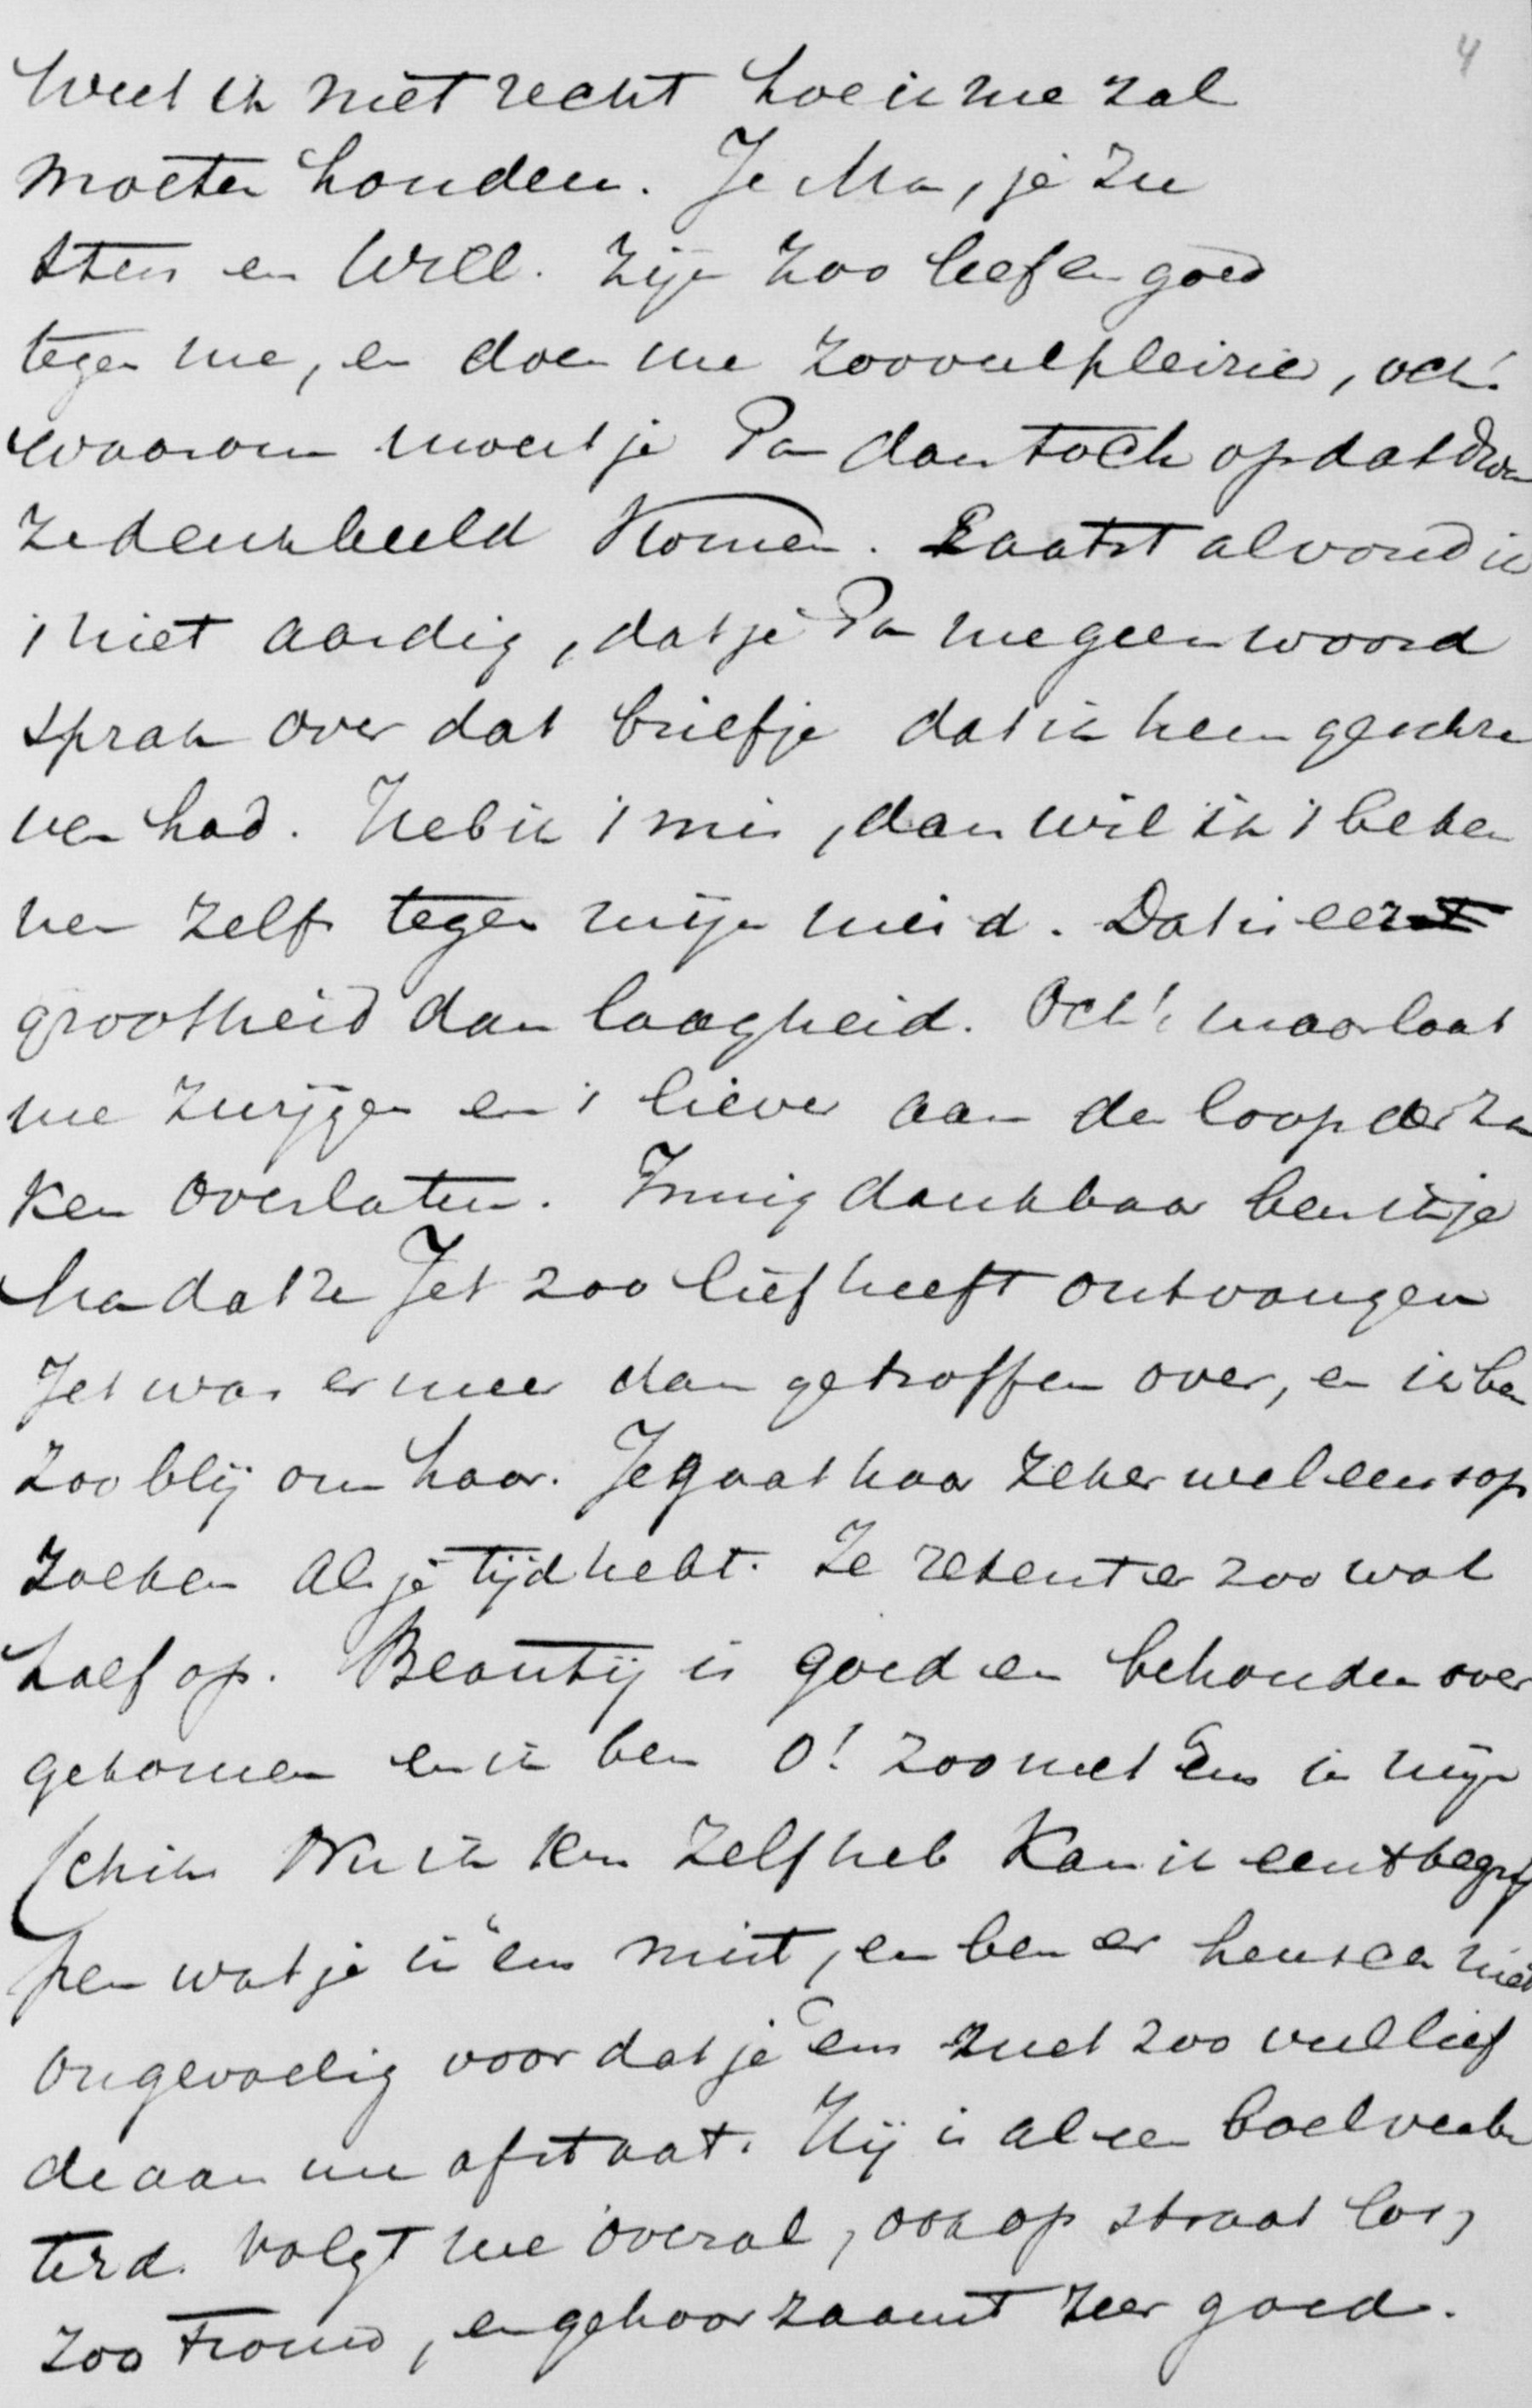 4
Weet ik niet recht hoe ik me zal
moeten houden. Je Ma, je zu
sters en Will. zijn zoo lief en goed
tegen me, en doen me zooveel pleizier, och!
waarom moest je Pa dan toch op dat dwa
ze denkbeeld komen. Laatst al vond ik
't niet aardig, dat je Pa me geen woord
sprak over dat briefje dat ik hem geschre
ven had. Heb ik 't mis, dan wil ik 't beken
nen zelfs tegen mijn meid. Dat is eer
grootheid dan laagheid. Och! maar laat
me zwijgen en 't liever aan den loop der za
ken overlaten. Innig dankbaar ben ik je
Ma dat ze Jet zoo lief heeft ontvangen
Jet was er meer dan getroffen over, en ik ben
zoo blij om haar. Je gaat haar zeker wel eens op
zoeken als je tijd hebt. Ze rekent er zoo wat
half op. Beautij is goed en behouden over
gekomen en ik ben O! zoo met em in mijn
schik Nu ik em zelf heb kan ik eerst begrij
pen wat je in em mist, en ben er heusch niet
ongevoelig voor dat je em met zoo veel lief
de aan me afstaat. Hij is al een boel verbe
terd. volgt me overal, ook op straat los,
zoo trouw, en gehoorzaamt zeer goed.